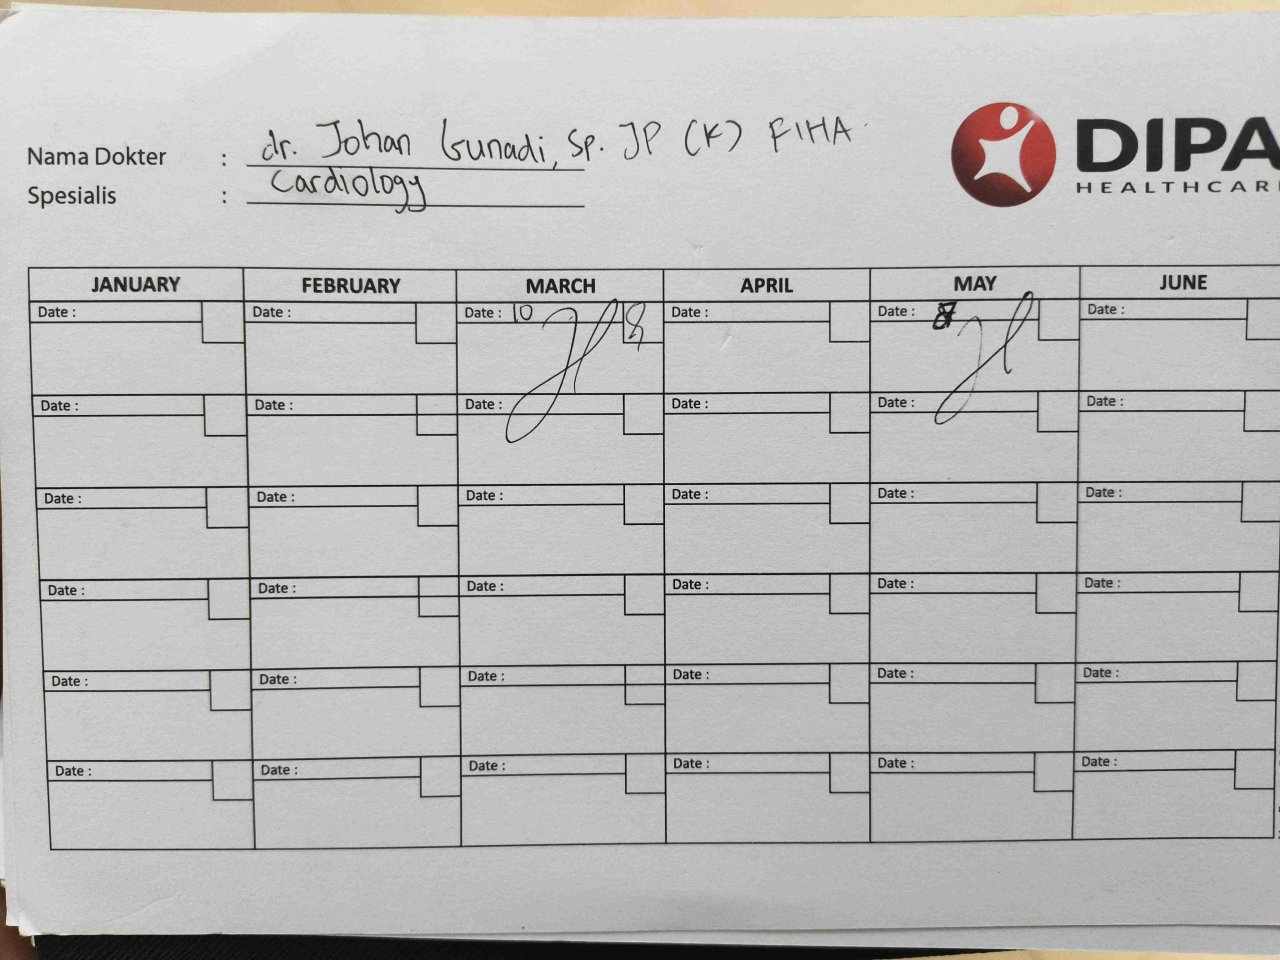 dr. Johan Gunadi, Sp. JP (K) FIHA
Nama Dokter :
Cardiology
Spesialis :
DIPA
HEALTHCAR
JANUARY FEBRUARY MARCH APRIL MAY JUNE
Date : Date : Date : 10 8 Date : Date : Date :
Date : Date : Date : Date : Date : Date :
Date : Date : Date : Date : Date : Date :
Date : Date : Date : Date : Date : Date :
Date : Date : Date : Date : Date : Date :
Date : Date : Date : Date : Date : Date :